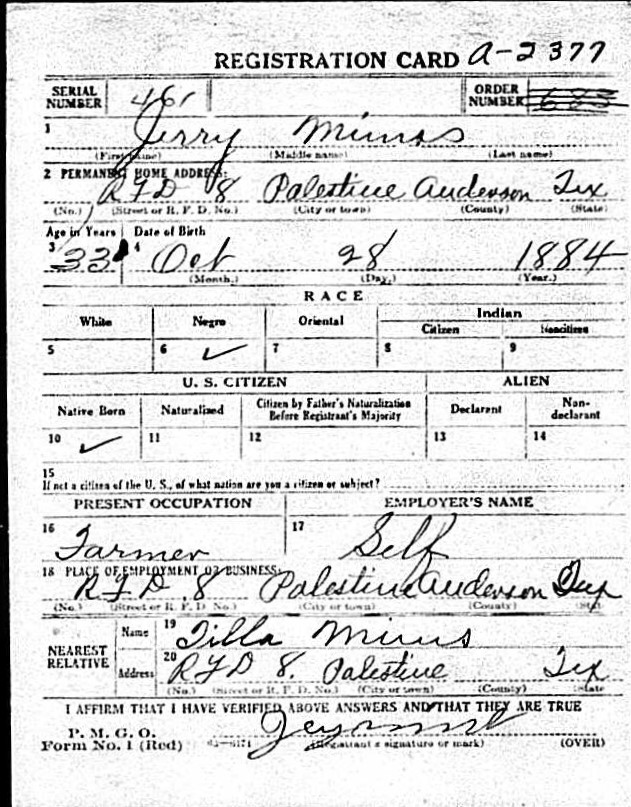 REGISTRATION CARD A-2377
SERIAL NUMBER 461 ORDER NUMBER
1 Jerry Mims
(First name) (Middle name) (Last name)
2 PERMANENT HOME ADDRESS:
RFD 8 Palestine Anderson Tex
(No.) (Street or R. F. D. No.) (City or town) (County) (State)
Age in Years Date of Birth
3 33 4 Oct 28 1884
(Month.) (Day.) (Year.)
RACE
White Negro Oriental Indian
Citizen Noncitizen
5 6 ✓ 7 8 9
U. S. CITIZEN ALIEN
Native Born Naturalized Citizen by Father's Naturalization Before Registrant's Majority Declarant Non-declarant
10 ✓ 11 12 13 14
15
If not a citizen of the U. S., of what nation are you a citizen or subject?
PRESENT OCCUPATION EMPLOYER'S NAME
16 Farmer 17 Self
18 PLACE OF EMPLOYMENT OR BUSINESS:
RFD 8 Palestine Anderson Tex
(No.) (Street or R. F. D. No.) (City or town) (County) (State)
NEAREST RELATIVE
Name 19 Tilla Mims
Address 20 RFD 8. Palestine Tex
(No.) (Street or R. F. D. No.) (City or town) (County) (State
I AFFIRM THAT I HAVE VERIFIED ABOVE ANSWERS AND THAT THEY ARE TRUE
P. M. G. O.
Form No. 1 (Red) (Registrant's signature or mark) (OVER)